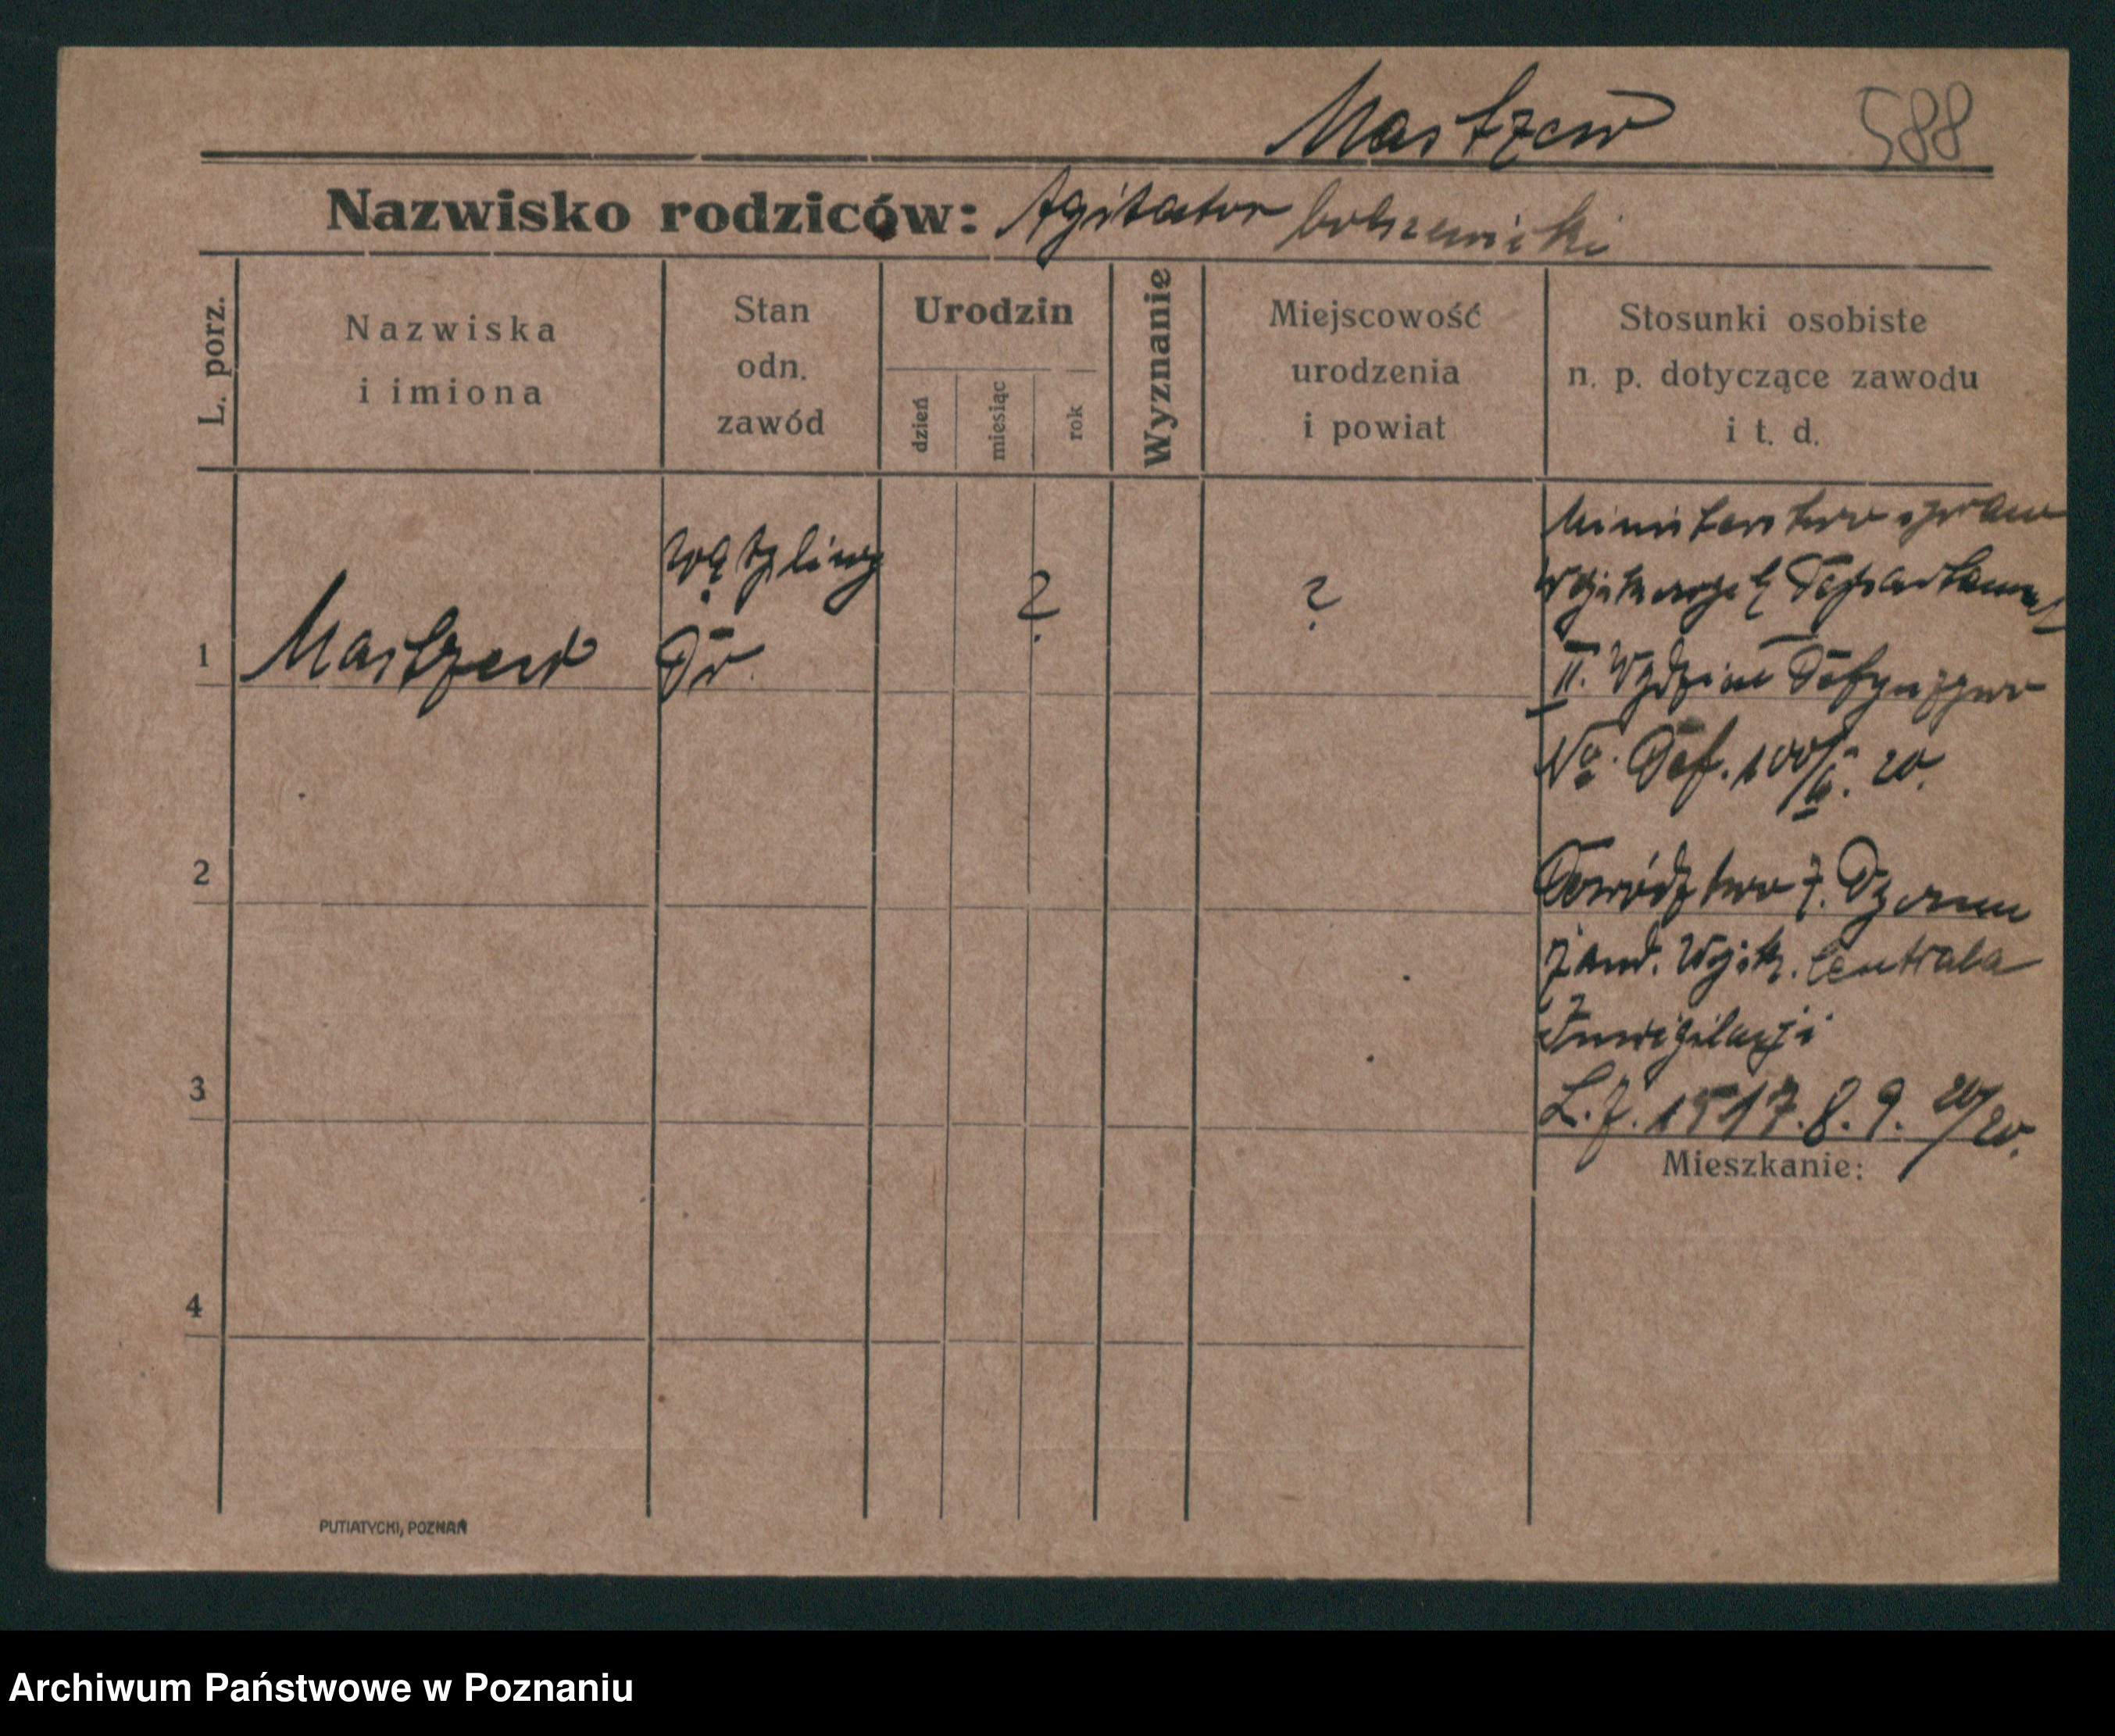 Mastzew 588
Nazwisko rodziców: Agitator bolszewicki
L. porz.
Nazwiska
i imiona
Stan
odn.
zawód
Urodzin
dzień
miesiąc
rok
Wyznanie
Miejscowość
urodzenia
i powiat
Stosunki osobiste
n. p. dotyczące zawodu
i t. d.
1
Mastzew
Dr.
?
?
Ministerstwo spraw
Wojskowych Departament
II. Wydział Defenzywa
No. Def. 100/II. 20.
Dowództwo 7. Dyonu
żand. Wojsk. Centrala
Inwigilacji
L. J. 1517. 8. 9. 20/20.
2
3
Mieszkanie:
4
PUTIATYCKI, POZNAŃ
Archiwum Państwowe w Poznaniu